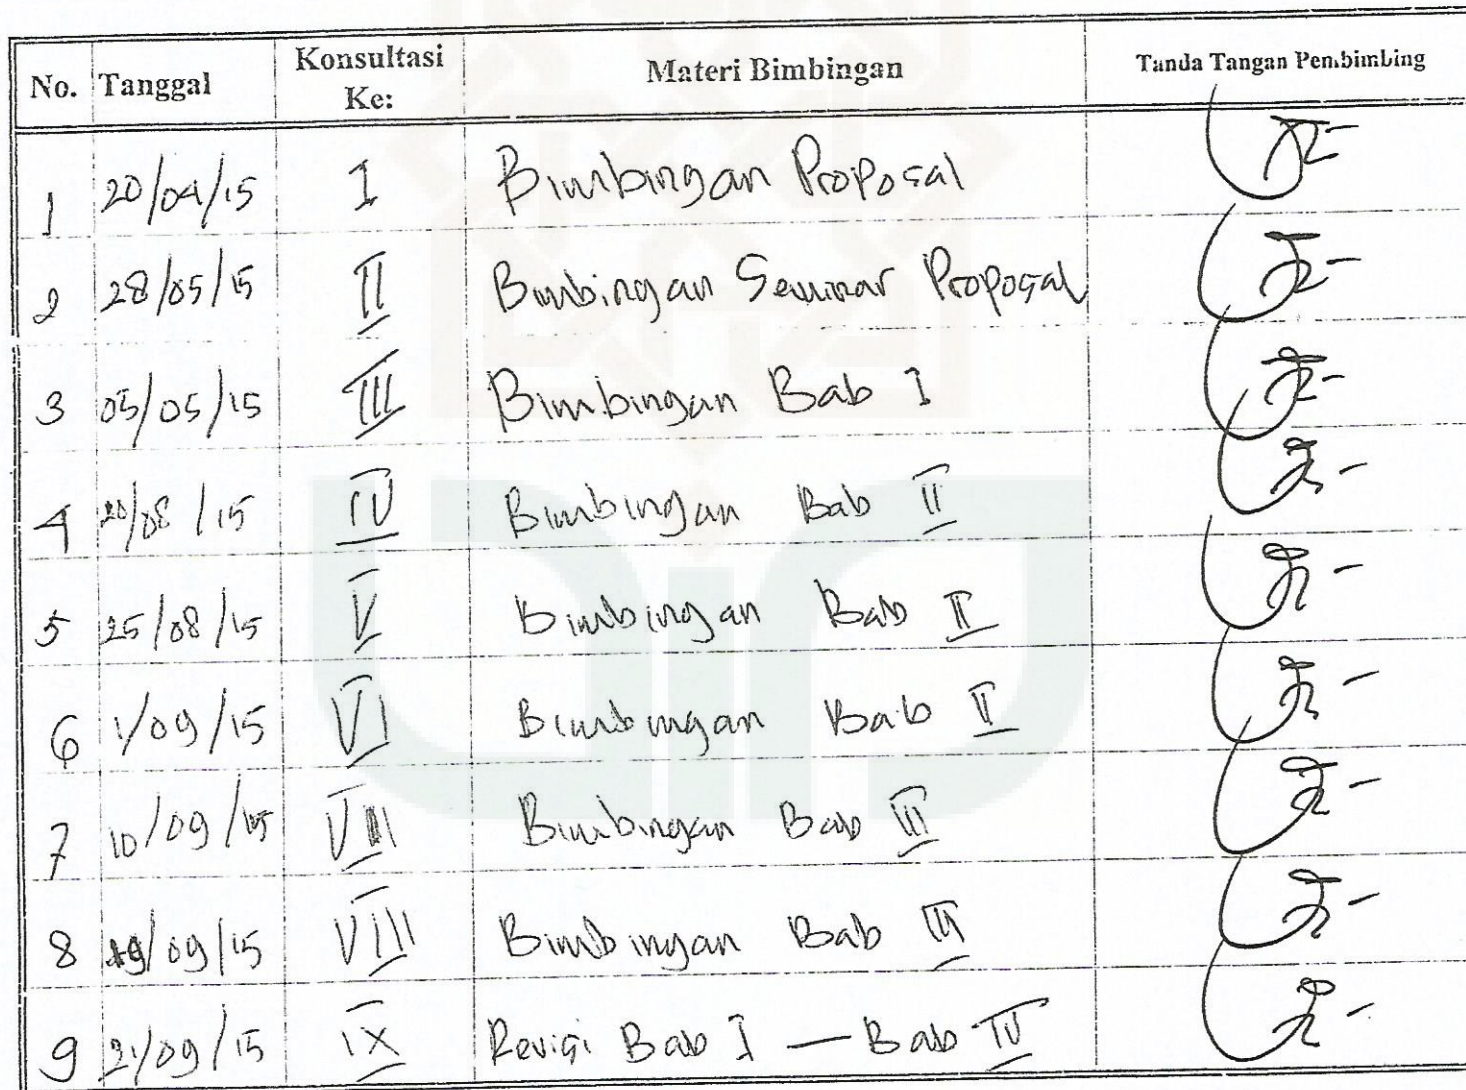 No. Tanggal Konsultasi Ke: Materi Bimbingan Tanda Tangan Pembimbing
1 20/04/15 I Bimbingan Proposal
2 28/05/15 II Bimbingan Seminar Proposal
3 05/05/15 III Bimbingan Bab I
4 20/08/15 IV Bimbingan Bab II
5 25/08/15 V Bimbingan Bab II
6 1/09/15 VI Bimbingan Bab II
7 10/09/15 Bimbingan Bab III
8 /09/15 VIII Bimbingan Bab III
9 21/09/15 IX Revisi Bab I — Bab IV